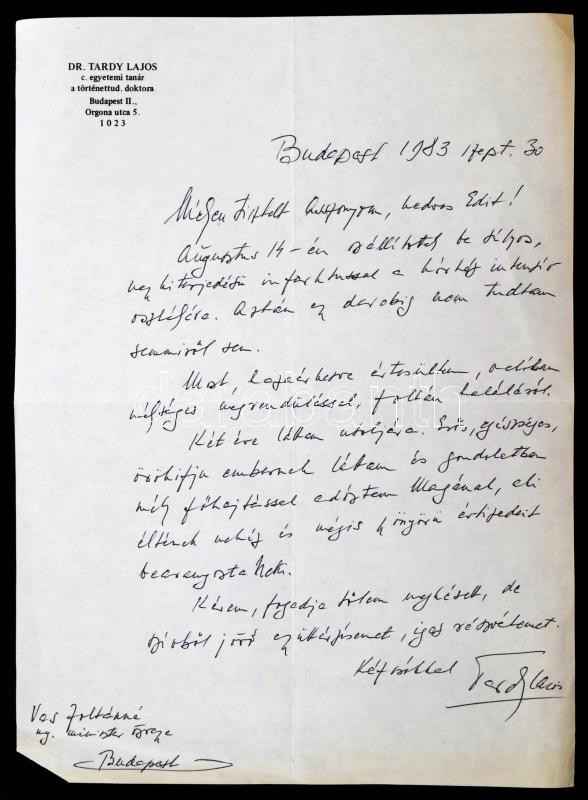 DR. TARDY LAJOS
c. egyetemi tanár
a történettud. doktora
Budapest II.,
Orgona utca 5.
1023
Budapest 1983 szept. 30
Mélyen tisztelt Asszonyom, kedves Edit!
Augusztus 14-én szállítottak be súlyos,
nagykiterjedésű infarktussal a kórház intenzív
osztályára. Aztán egy darabig nem tudtam
semmiről sem.
Most, hazaérkezve értesültem, valóban
mélységes megrendüléssel, Zoltán haláláról.
Két éve láttam utoljára. Erős, egészséges,
örökifjú embernek láttam és gondolatban
mély főhajtással adóztam Magának, aki
éltének nehéz és mégis gyönyörű értizedeit
bearanyozta Neki.
Kérem, fogadja tőlem megkésett, de
szívből jövő együttérzésemet, igaz részvétemet.
Kézcsókkal Tardy Lajos
Vas Zoltánné
ny. miniszter özvegye
Budapest